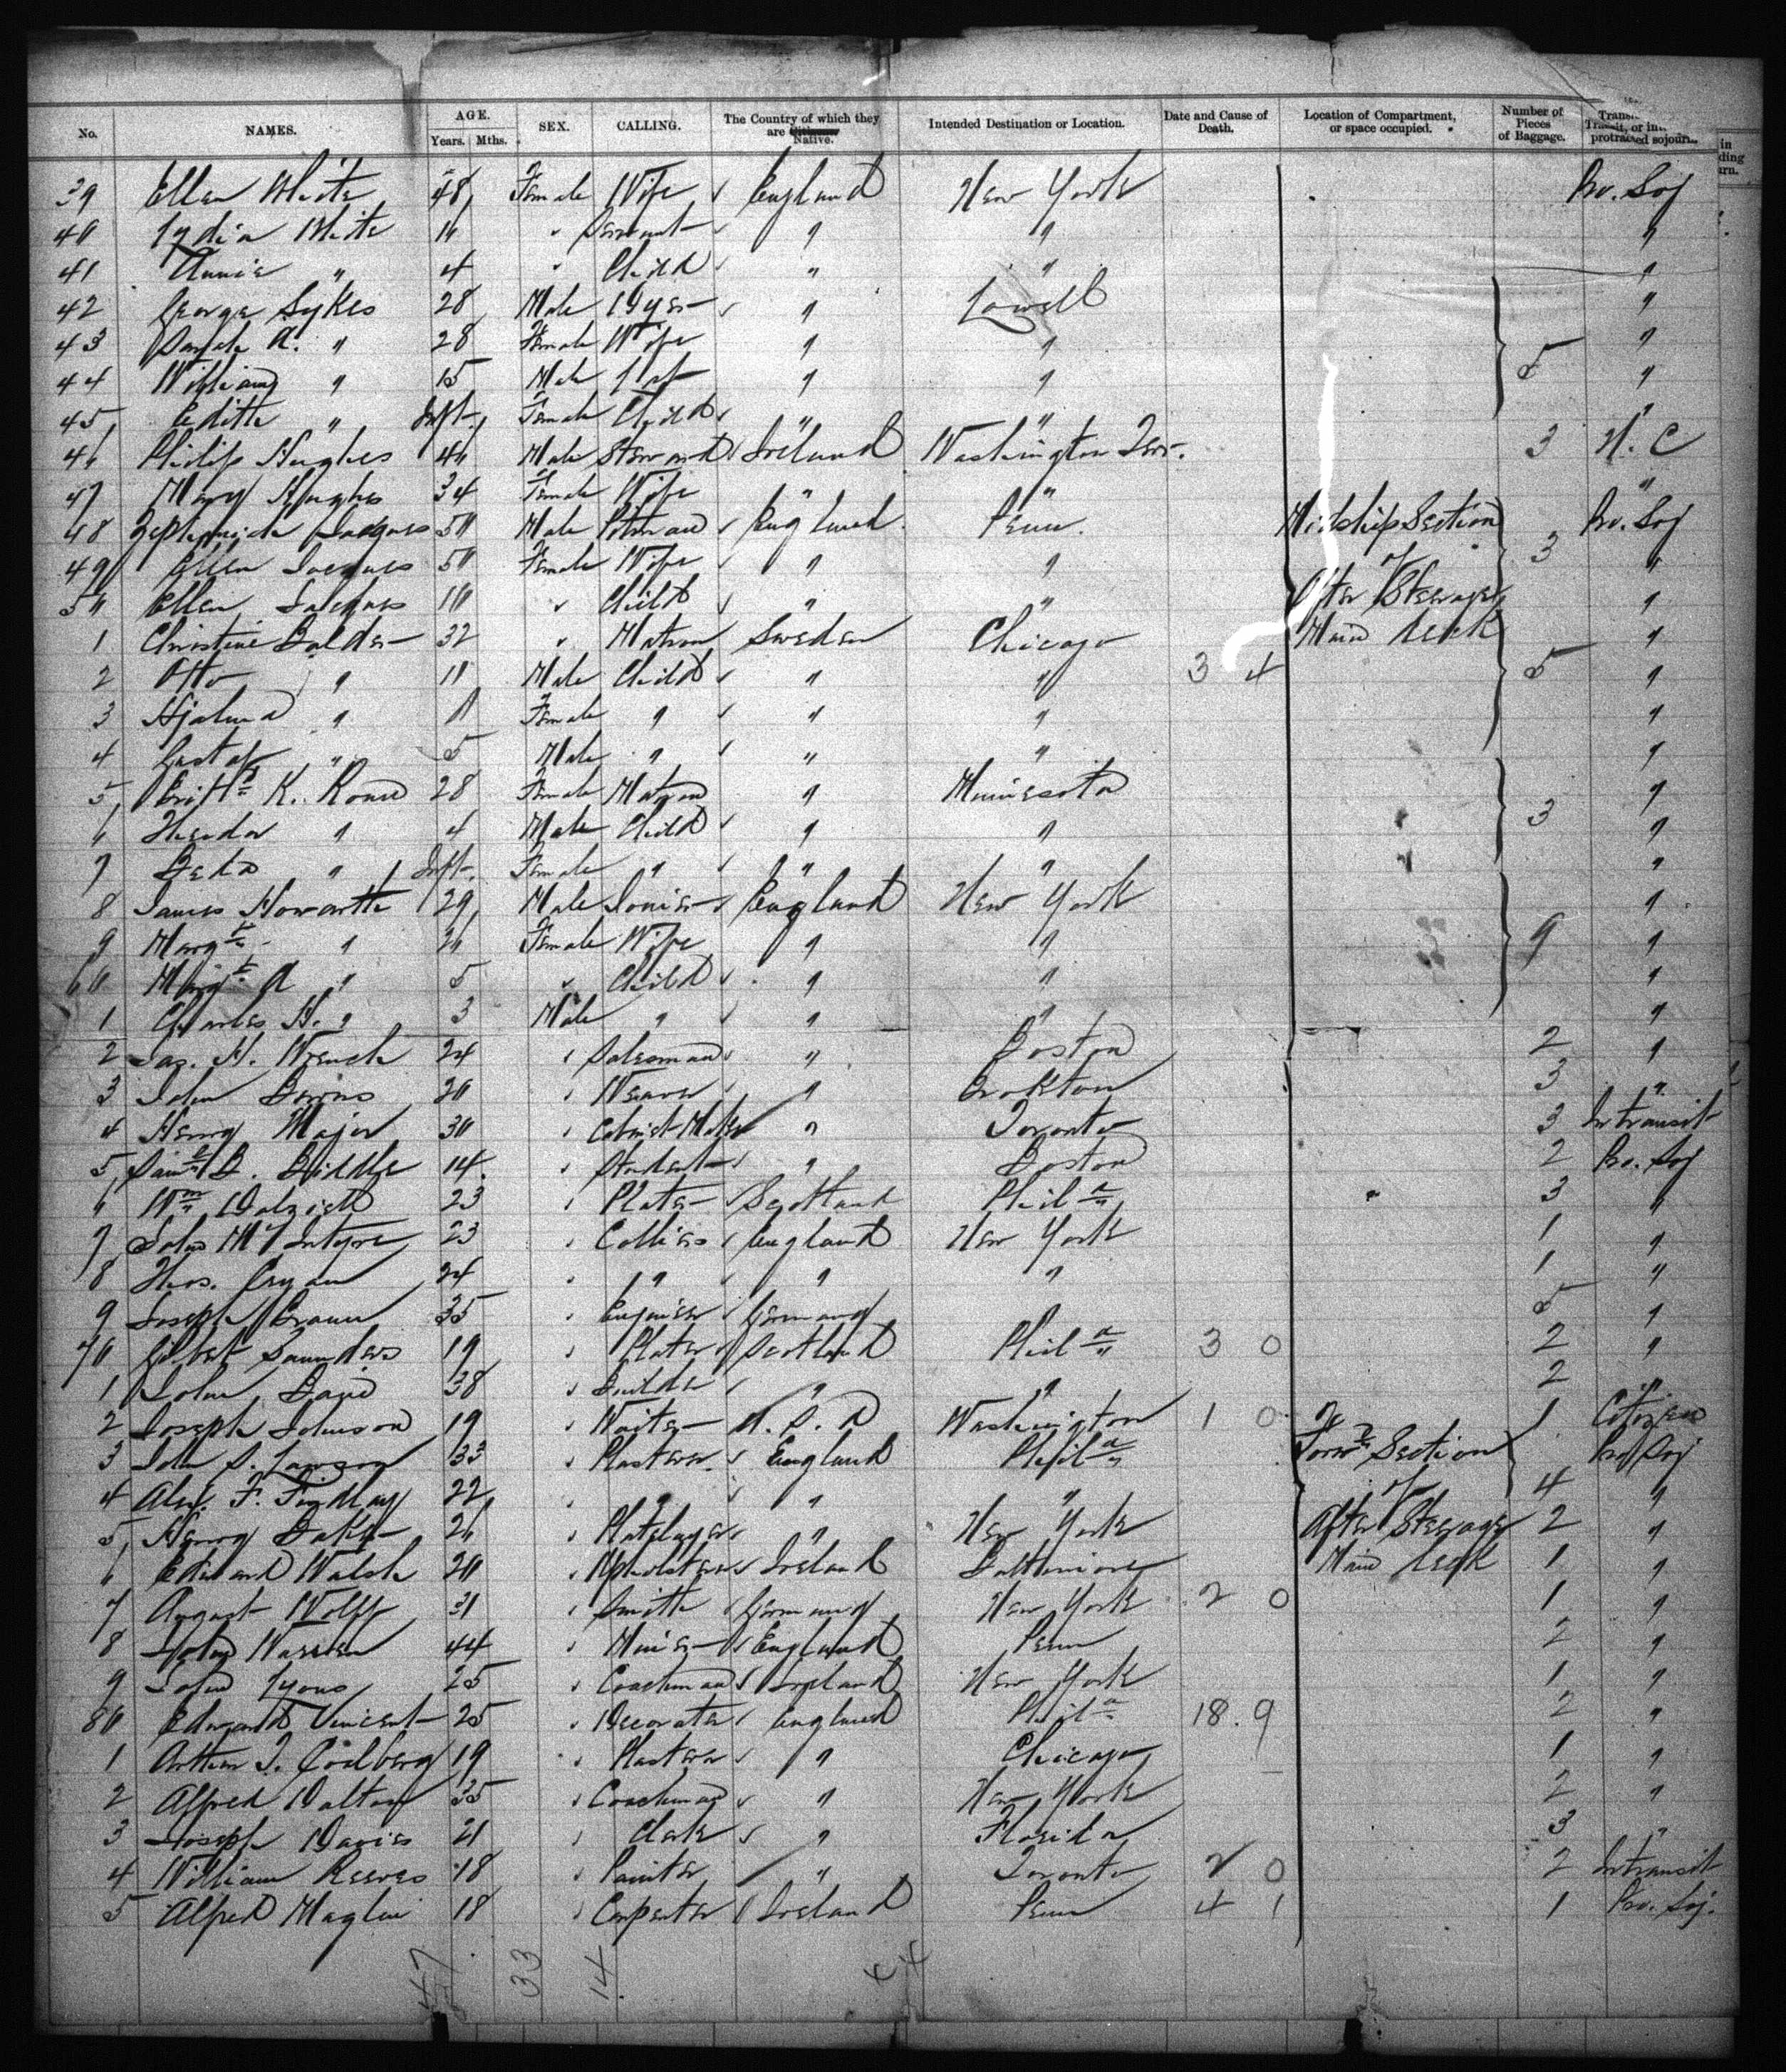 No. NAMES. AGE. Years. Mths. SEX. CALLING. The Country of which they are Citizens Native. Intended Destination or Location. Date and Cause of Death. Location of Compartment, or space occupied. Number of Pieces of Baggage. Transit, or in protracted sojourn.
39 Ellen White 48 Female Wife England New York Pro. Soj
40 Lydia White 16 " Servant " " "
41 Annie " 4 " Child " " "
42 George Sykes 28 Male Dyer " Lowell "
43 Sarah A. " 28 Female Wife " " "
44 William " 15 Male " " 5 "
45 Edith " Inft. Female Child " " "
46 Philip Hughes 46 Male Steward Ireland Washington Terr. 3 U. C
47 Mary Hughes 34 Female Wife " " "
48 Jacques 50 Male Pitman England Penn. Midship Section Pro. Soj
49 Ellen Jacques 50 Female Wife " " of 3 "
50 Ellen Jacques 10 " Child " " After Steerage "
1 Christine Balder 32 " Matron Sweden Chicago Main Deck "
2 Otto " 11 Male Child " " 3 4 5 "
3 Hjalma " Female " " " "
4 Gustaf " 5 Male " " " "
5 K. 28 Female Matron " Minnesota "
6 Theodor " 4 Male Child " " 3 "
7 Beda " Inft. Female " " " "
8 James Howarth 29 Male Joiner England New York "
9 Margt " 26 Female Wife " " 9 "
60 Margt A " 5 " Child " " "
1 Charles H. " 3 Male " " " "
2 Jas. H. Wrench 24 " Salesman " Boston 2 "
3 John 20 " Weaver " Brokton 3 "
4 Henry Major 30 " Cabinet Maker " Toronto 3 In transit
5 Saml B. Biddle 14 " Student " Boston 2 Pro. Soj
6 Wm Dalziell 23 " Plater Scotland Phila 3 "
7 John McIntyre 23 " Collier England New York 1 "
8 Thos. Cryan 24 " " " " 1 "
9 Joseph Braun 35 " Engineer Germany 5 "
70 Gilbert Saunders 19 " Plater Scotland Phila 3 0 2 "
1 John 38 " Builder " " 2 "
2 Joseph Johnson 19 " Waiter U. S. A Washington 1 0 1 Citizen
3 John S. Lawson 33 " Plasterer England Phila Forwd Section Pro Soj
4 Alex. F. Findlay 22 " " " " of 4 "
5 Henry Baker 26 " Platelayer " New York After Steerage 2 "
6 Edward Walsh 20 " Upholsterer Ireland Baltimore Main Deck 1 "
7 August Wolff 31 " Smith Germany New York 2 0 1 "
8 John Warren 44 " Miner England Penn 2 "
9 John Lyons 25 " Coachman Ireland New York 1 "
80 Edward Vincent 25 " Decorator England Phila 18. 9 2 "
1 Arthur J. 19 " Plasterer " Chicago 1 "
2 Alfred Dalton 35 " Coachman " New York 2 "
3 Joseph Davies 21 " Clerk " Florida 3 "
4 William Reeves 18 " Painter " Toronto 2 0 2 In transit
5 Alfred Maglin 18 " Carpenter Ireland Penn 4 1 1 Pro. Soj.
47 33 14 44